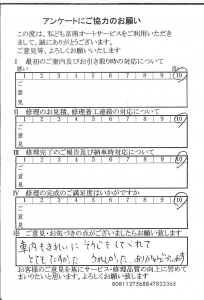 アンケートにご協力のお願い
この度は、私ども京南オートサービスをご利用いただき
まして、誠にありがとうございます。
ご意見等、よろしくお願いいたします
Ⅰ 最初のご案内及びお引き取り時の対応について
悪い 良い
1 2 3 4 5 6 7 8 9 10
ご意見
Ⅱ 修理のお見積、修理着工連絡の対応について
1 2 3 4 5 6 7 8 9 10
ご意見
Ⅲ 修理完了のご報告及び納車時対応について
1 2 3 4 5 6 7 8 9 10
ご意見
Ⅳ 修理の完成のご満足度はいかがですか
1 2 3 4 5 6 7 8 9 10
ご意見
※ ご意見・お気づきの点がございましたらお願い致します
車内をきれいに そうじをしてくれて
とてもたすかした うれしかった ありがとうございます
お客様のご意見を基にサービス・修理品質の向上に努めて
まいりたいと思います。よろしくお願い致します
8081127568847822365